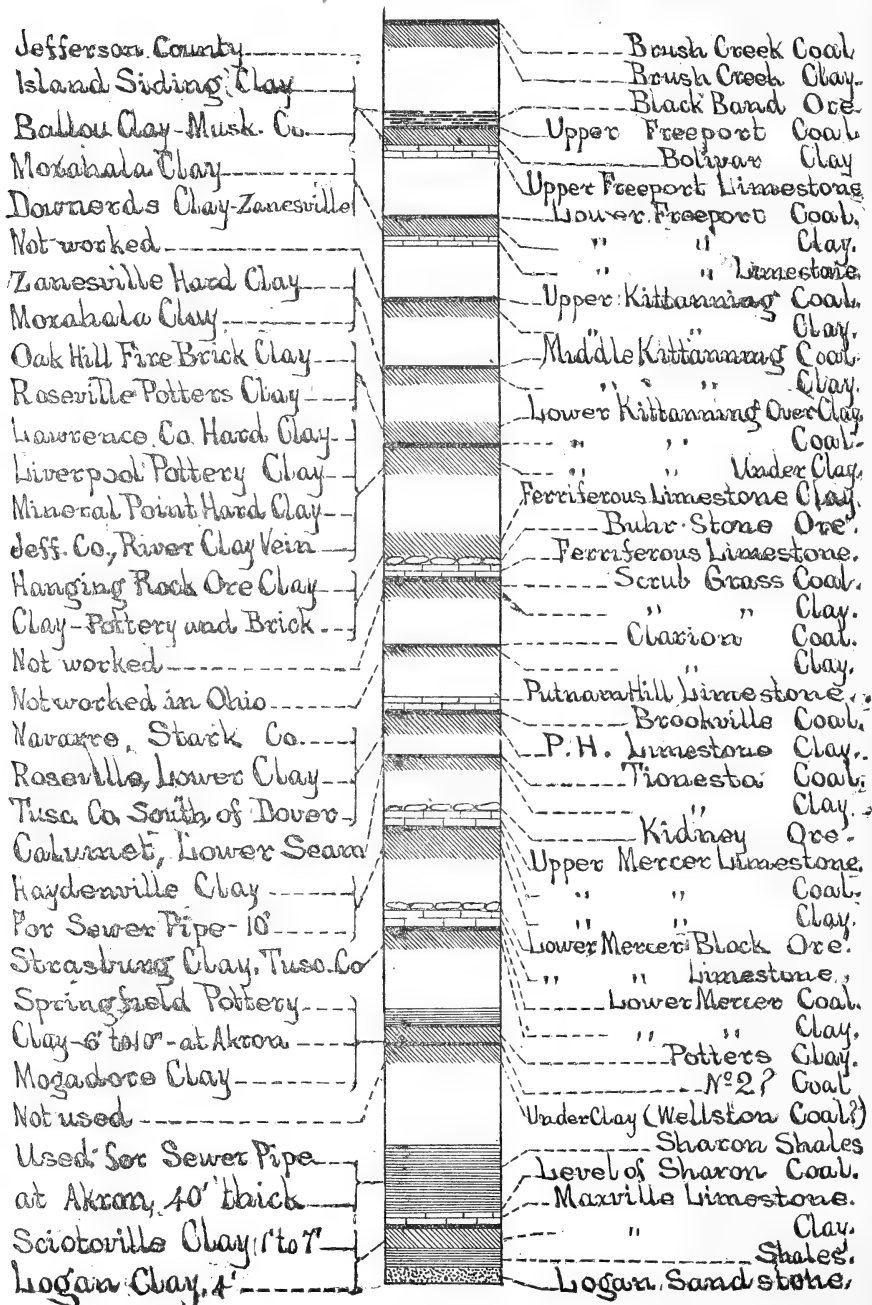 Jefferson County
Island Siding Clay
Ballou Clay-Musk. Co.
Moxahala Clay
Downerds Clay-Zanesville
Not worked
Zanesville Hard Clay
Moxahala Clay
Oak Hill Fire Brick Clay
Roseville Potters Clay
Lawrence Co. Hard Clay
Liverpool Pottery Clay
Mineral Point Hard Clay
Jeff. Co., River Clay Vein
Hanging Rock Ore Clay
Clay-Pottery and Brick
Not worked
Not worked in Ohio
Navarre, Stark Co.
Roseville, Lower Clay
Tusc. Co. South of Dover
Calumet, Lower Seam
Haydenville Clay
For Sewer Pipe-10'
Strasburg Clay, Tusc. Co
Springfield Pottery
Clay-6' to 10'-at Akron
Mogadore Clay
Not used
Used for Sewer Pipe
at Akron, 40' thick
Sciotoville Clay 1' to 7'
Logan Clay, 4'
Brush Creek Coal
Brush Creek Clay.
Black Band Ore
Upper Freeport Coal
Bolivar Clay
Upper Freeport Limestone
Lower Freeport Coal.
" " Clay.
" " Limestone
Upper Kittanning Coal.
" " Clay.
Middle Kittanning Coal
" " Clay.
Lower Kittanning Over Clay
" " Coal.
" " Under Clay.
Ferriferous Limestone Clay.
Buhr-Stone Ore.
Ferriferous Limestone.
Scrub Grass Coal.
" " Clay.
Clarion Coal.
" Clay.
Putnam Hill Limestone.
Brookville Coal.
P.H. Limestone Clay.
Tionesta Coal.
" Clay.
Kidney Ore.
Upper Mercer Limestone.
" " Coal.
" " Clay.
Lower Mercer Block Ore.
" " Limestone.
Lower Mercer Coal.
" " Clay.
Potters Clay.
Nº 2? Coal
Under Clay (Wellston Coal?)
Sharon Shales
Level of Sharon Coal.
Maxville Limestone.
" Clay.
Shales.
Logan Sandstone.